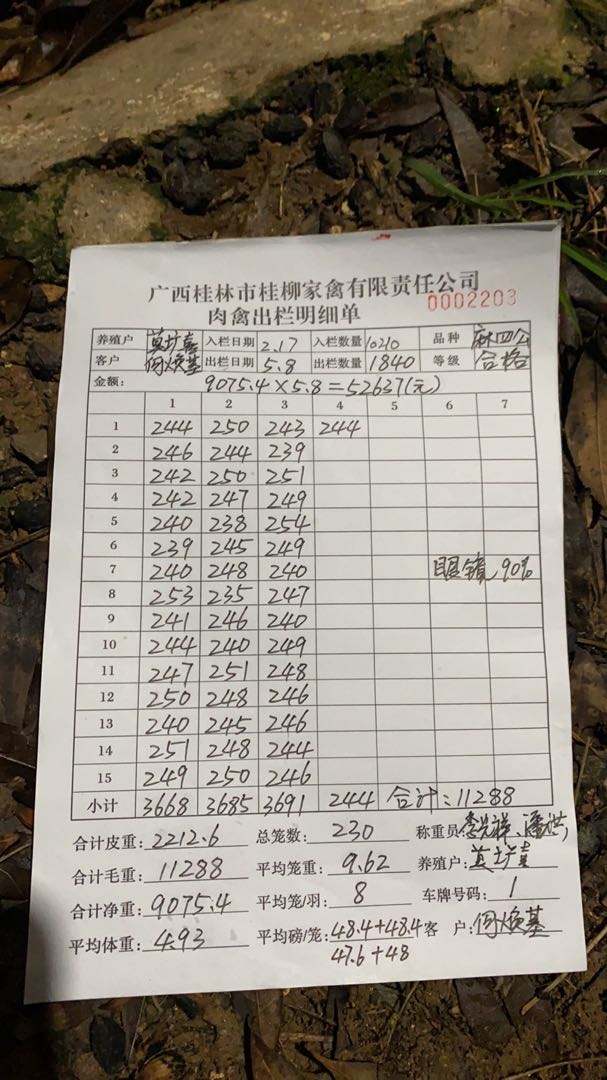 广西桂林市桂柳家禽有限责任公司
肉禽出栏明细单 0002203
养殖户 入栏日期 2.17 入栏数量 10210 品种 麻四公
客户 何焕基 出栏日期 5.8 出栏数量 1840 等级 合格
金额: 9075.4×5.8=52637(元)
1 2 3 4 5 6 7
1 244 250 243 244
2 246 244 239
3 242 250 251
4 242 247 249
5 240 238 254
6 239 245 249
7 240 248 240 眼镜 90%
8 253 235 247
9 241 246 240
10 244 240 249
11 247 251 248
12 250 248 246
13 240 245 246
14 251 248 244
15 249 250 246
小计 3668 3685 3691 244 合计:11288
合计皮重: 2212.6 总笼数: 230 称重员:
合计毛重: 11288 平均笼重: 9.62 养殖户:
合计净重: 9075.4 平均笼/羽: 8 车牌号码: 1
平均体重: 4.93 平均磅/笼: 48.4+48.4 客 户: 何焕基
47.6+48